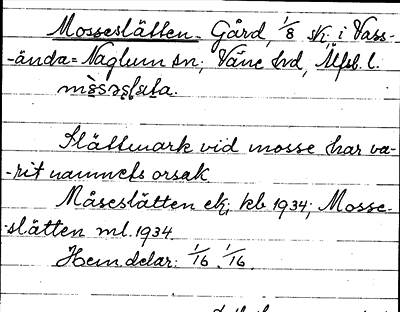 Mosseslätten. Gård, 1/8 sk. i Vass-
-ända=Naglum sn; Väne hd, Älfsb. l.
Slättmark vid mosse har va-
-rit namnets orsak
Måseslätten ek; kb 1934; Mosse-
slätten ml. 1934.
Hem.delar: 1/16. 1/16.